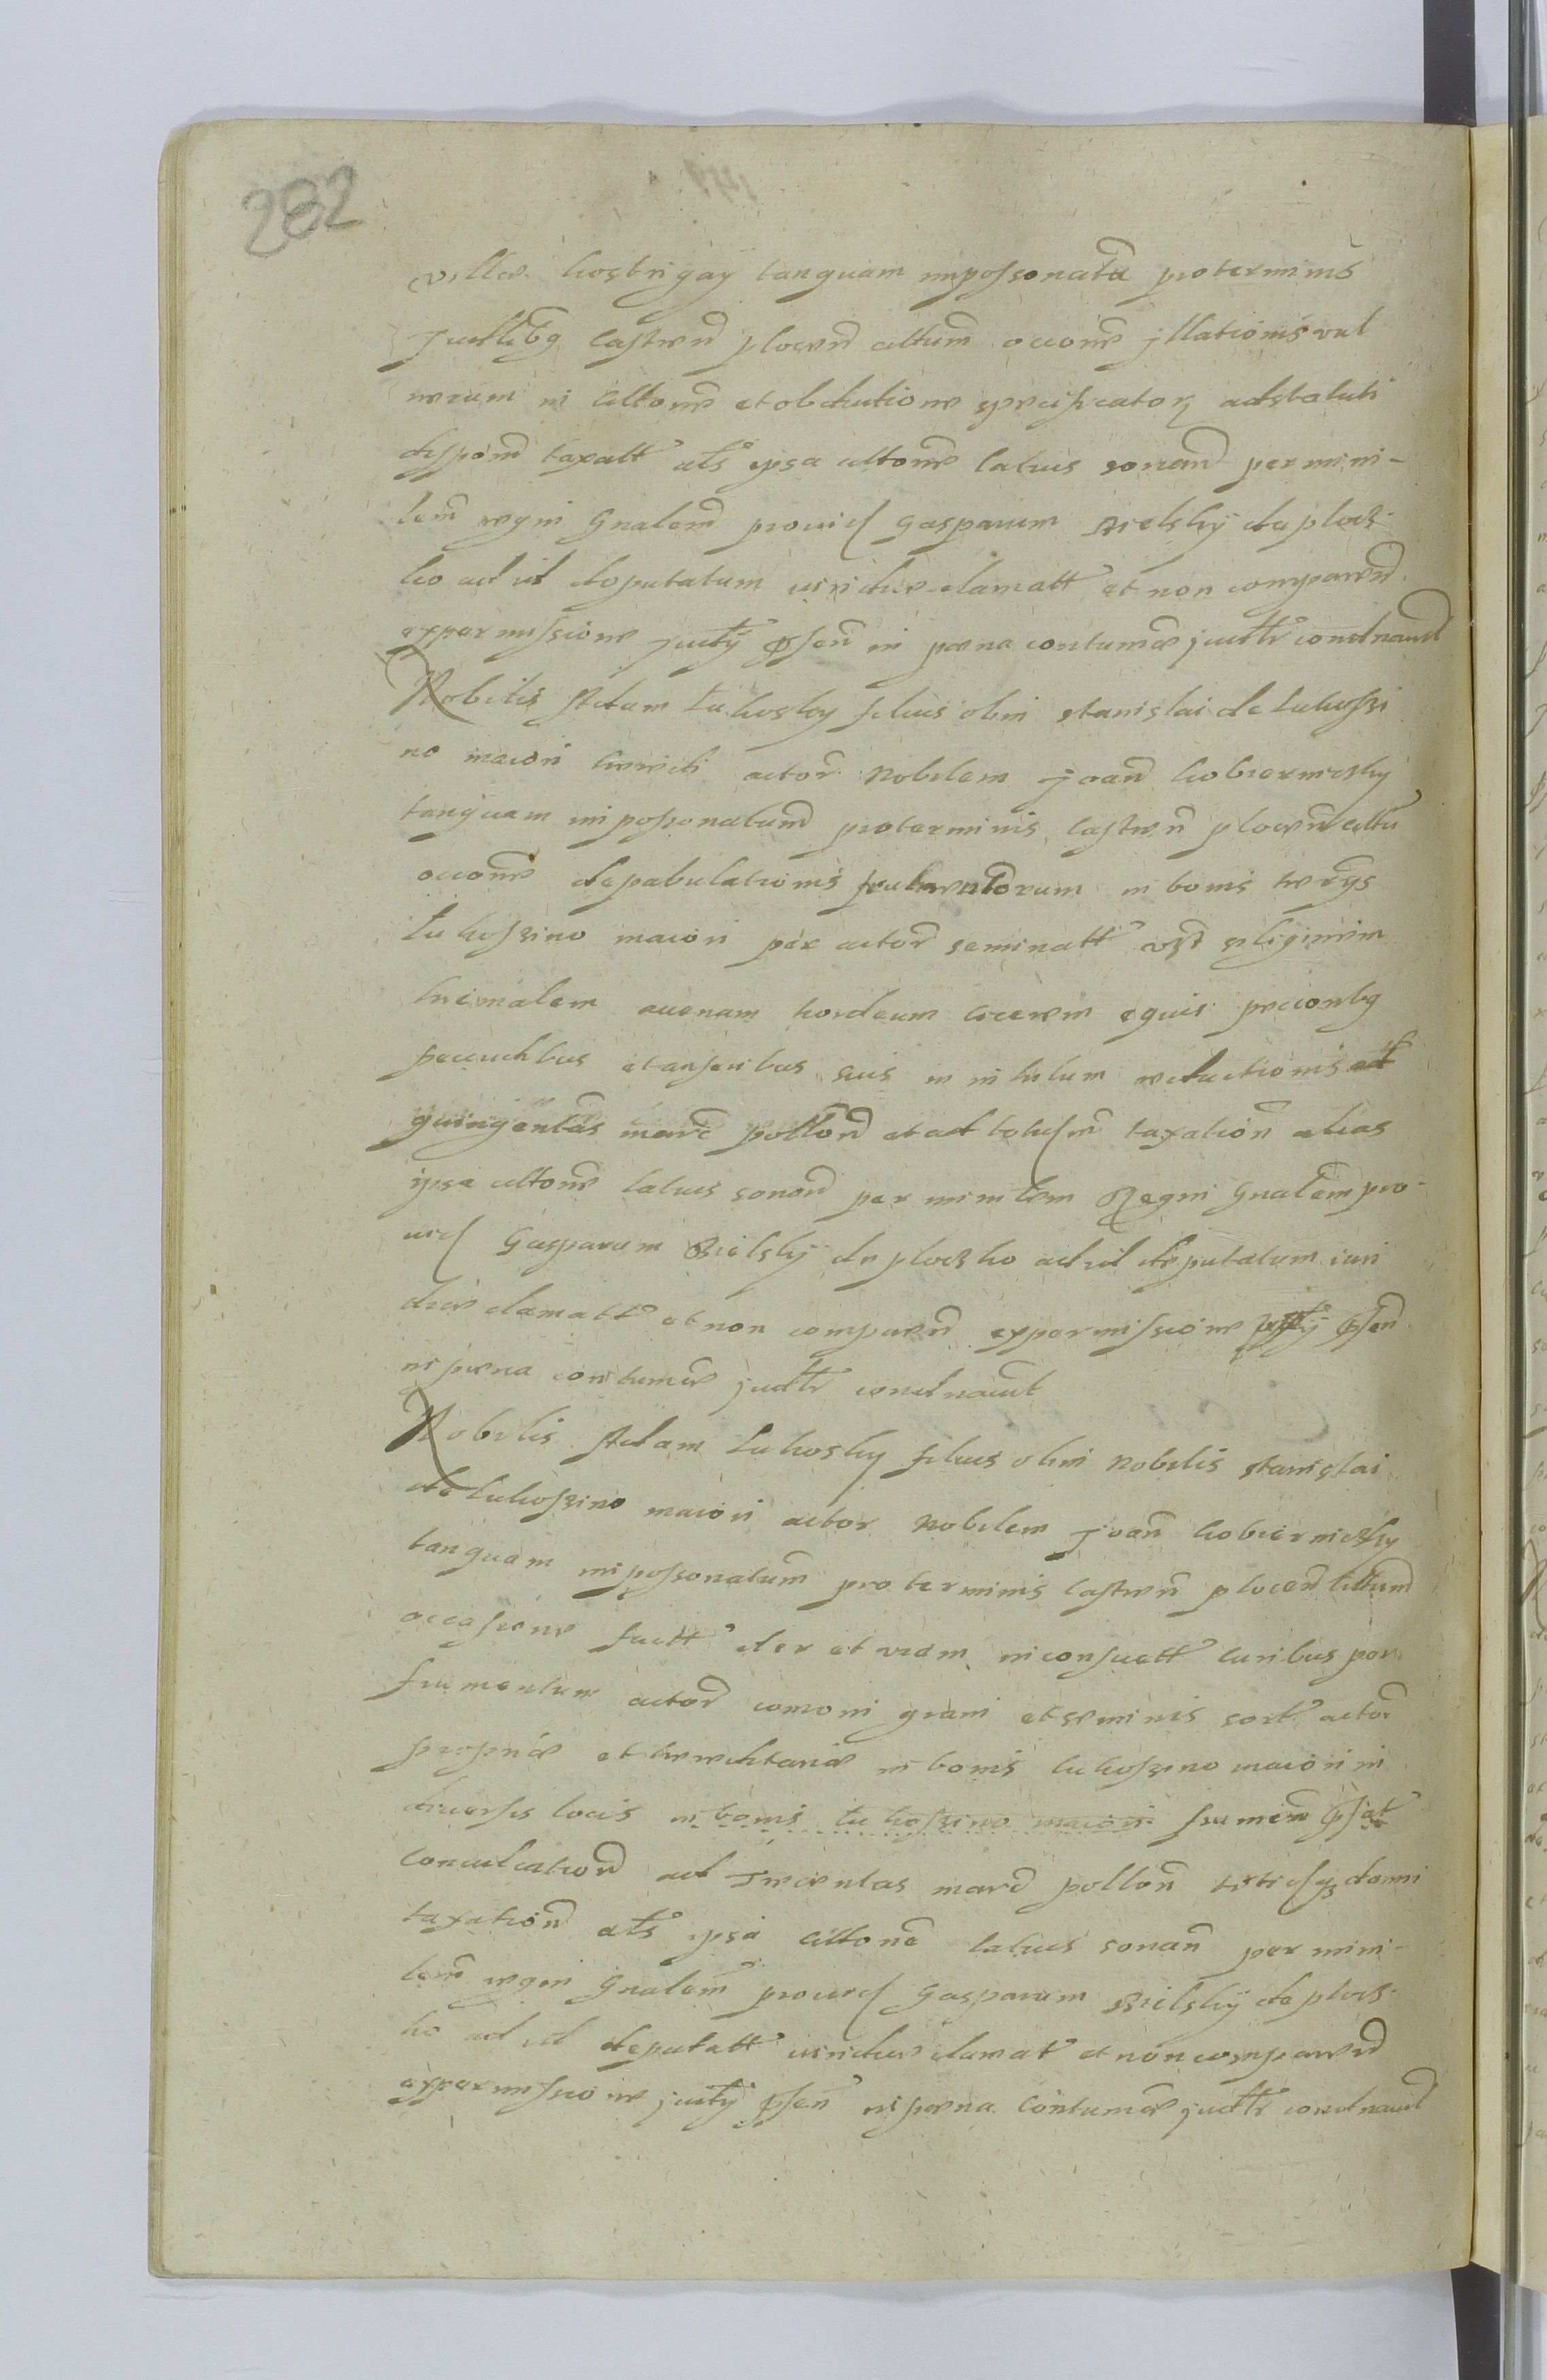 282
villae kostrigay tanquam impossonatū pro terminis
Judlibg castreñ ploceñ cittum occone jllationis vul
nerum in cittone et obductione specificatorz ad statuti
dispoñ taxatt als ipsa cittone latius sonañ per mini-
lem regni gnalem provid Gasparum Bielsky de plocz-
ko ad id deputatum iuridice clamatt et non compareñ
ex permissione Juditij pseñ in paena contumac judtr condnavit
Nobilis Adam Lukosky filius olim stanislai de Lukossi
no maiori heredi actor Nobilem Joañ kobierniczky
tanquam impossonatum pro terminis castreñ ploceñ cittū
occone depabulationis frumentorum in bonis herijs
Lukossino maiori per actor seminatt vzt siliginem
hiemalem avenam hordeum cicerem equis pecoribg
pecudibus et anseribus suis in nihilum reductionis ad
quingentas marc polloñ et ad totidem taxationi alias
ipsa cittone latius sonoñ per ministem Regni Gnalem pro-
vid Gasparum Bielsky de ploczko ad id deputatum iuri
dice clamatt et non compareñ ex permissione juditij pseñ
in paena contumac judtr condnavit
Nobilis Adam Lukosky filius olim Nobilis stanislai
de Lukossino maiori actor Nobilem Joañ kobierniczky
tanquam impossonatum pro terminis castreñ ploceñ cittum
occasione factt iter et viam inconsuett curribus per
frumentum actor comoni grani et seminis sort actor
propriae et hereditariae in bonis Lukossino maiori in
diversis locis in bonis Lukossino maiori frumeñ psat
conculcationi ad Trecentas marc polloñ totidemqz damni
taxationi als ipsa cittone latius sonañ per mini-
lem regni Gnalem provid Gasparum Bielsky de plocz-
ko ad id deputatt iuridice clamat et non compareñ
ex permissione juditij pseñ in paena contumac judtr condnavit